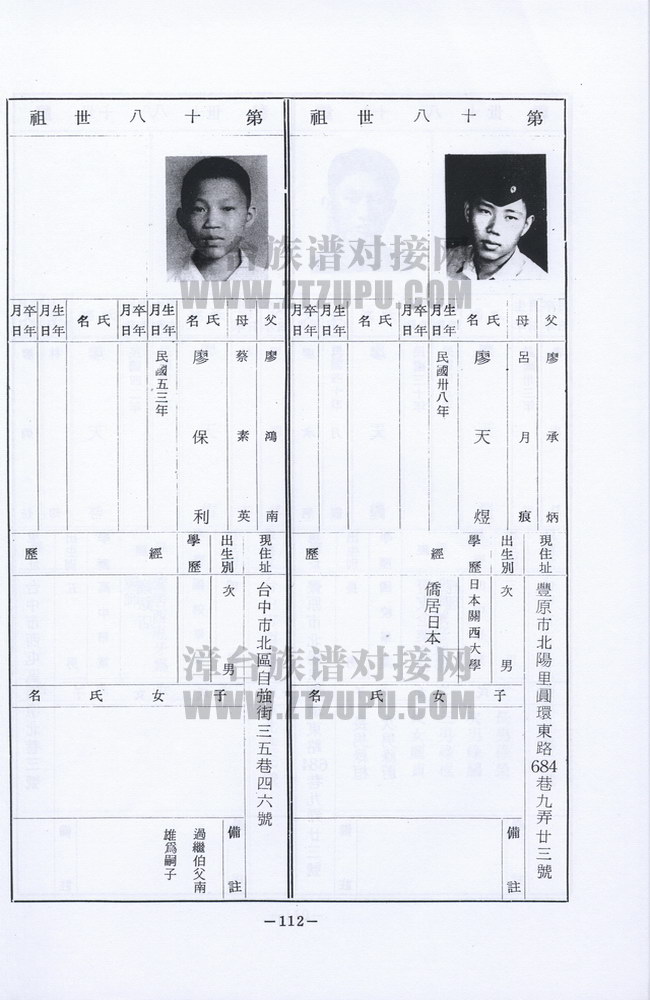 第十八世祖
父 廖承炳
母 呂月痕
氏名 廖天煜
生年月日 民國卅八年
卒年月日
氏名
生年月日
卒年月日
現住址 豐原市北陽里圓環東路684巷九弄廿三號
出生別 次男
學歷 日本關西大學
經歷 僑居日本
子女氏名
備註
第十八世祖
父 廖鴻南
母 蔡素英
氏名 廖保利
生年月日 民國五三年
卒年月日
氏名
生年月日
卒年月日
現住址 台中市北區自強街三五巷四六號
出生別 次男
學歷
經歷
子女氏名
備註 過繼伯父南
雄爲嗣子
—112—
漳台族谱对接网
WWW.ZTZUPU.COM
漳台族谱对接网
WWW.ZTZUPU.COM